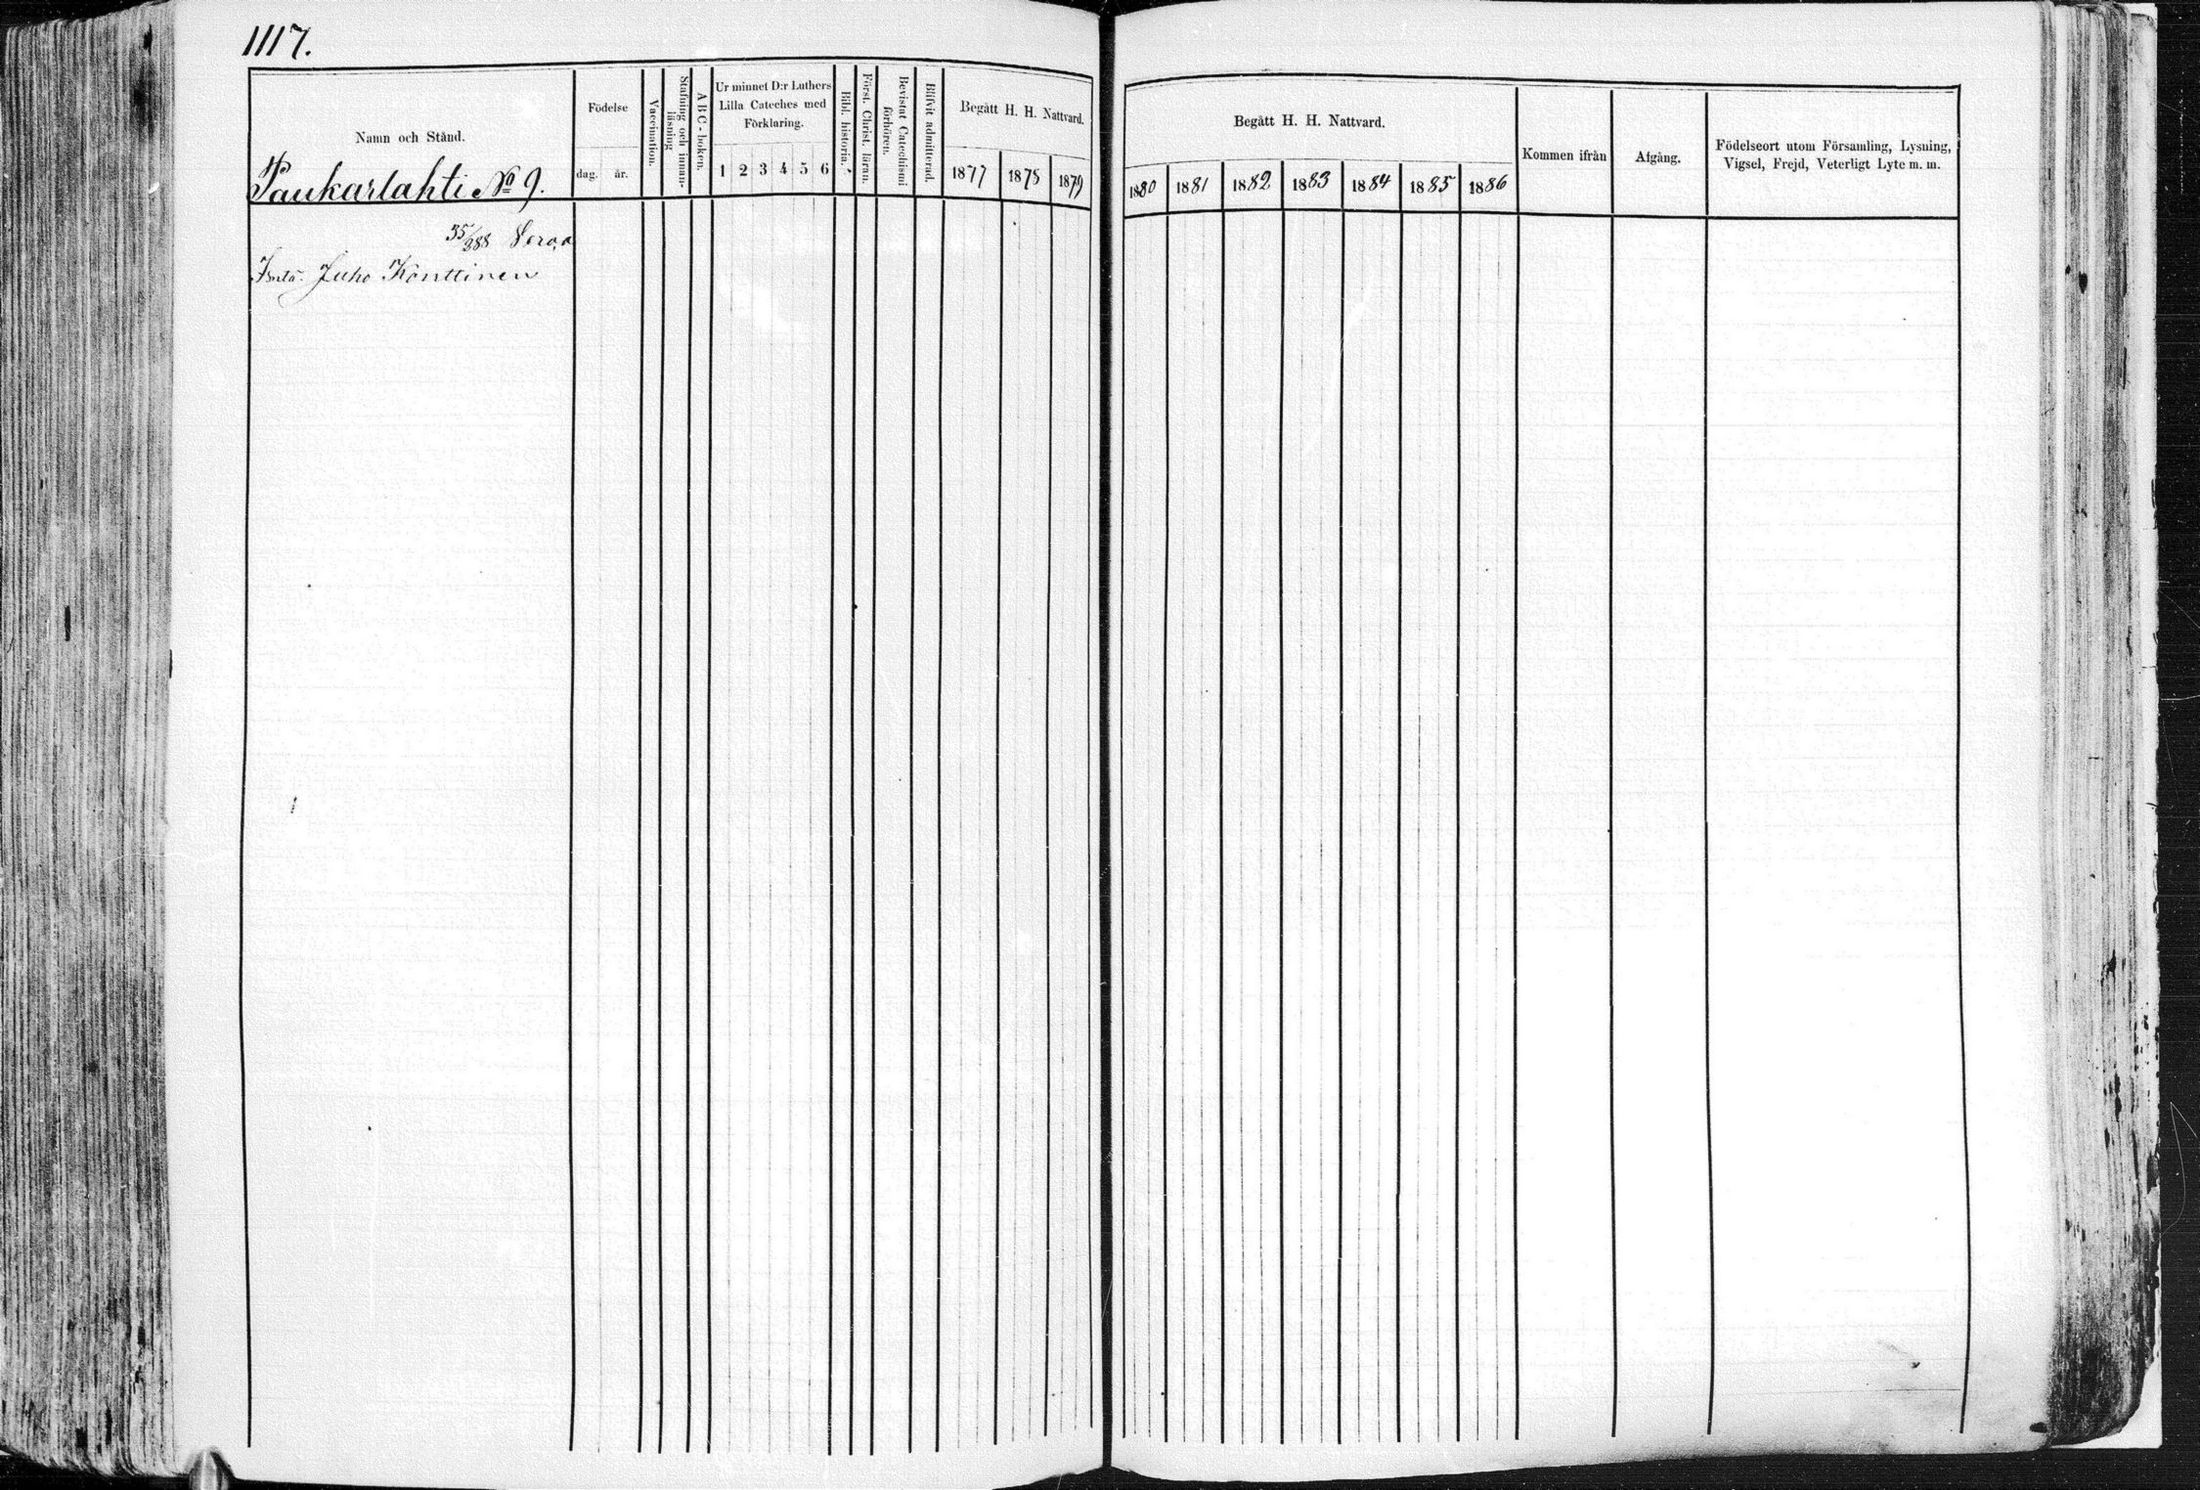 1117.
Namn och Stånd.
Paukarlahti No 9.
Födelse
dag. år.
Vaccination.
Stafning och innan-
läsning
A B C-boken.
Ur minnet D:r Luthers
Lilla Cateches med
Förklaring.
1 2 3 4 5 6
Bibl. historia.
Först. Christ. läran.
Bevistat Catechismi
förhören.
Blifvit admitterad.
Begått H. H. Nattvard.
1877 1878 1879
Begått H. H. Nattvard.
1880 1881 1882 1883 1884 1885 1886
Kommen ifrån
Afgång.
Födelseort utom Församling, Lysning,
Vigsel, Frejd, Veterligt Lyte m. m.
35/388
Juho Konttinen